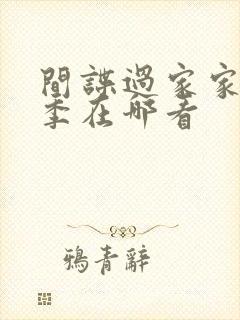 間諜過家家
季在哪看
鴉青辭